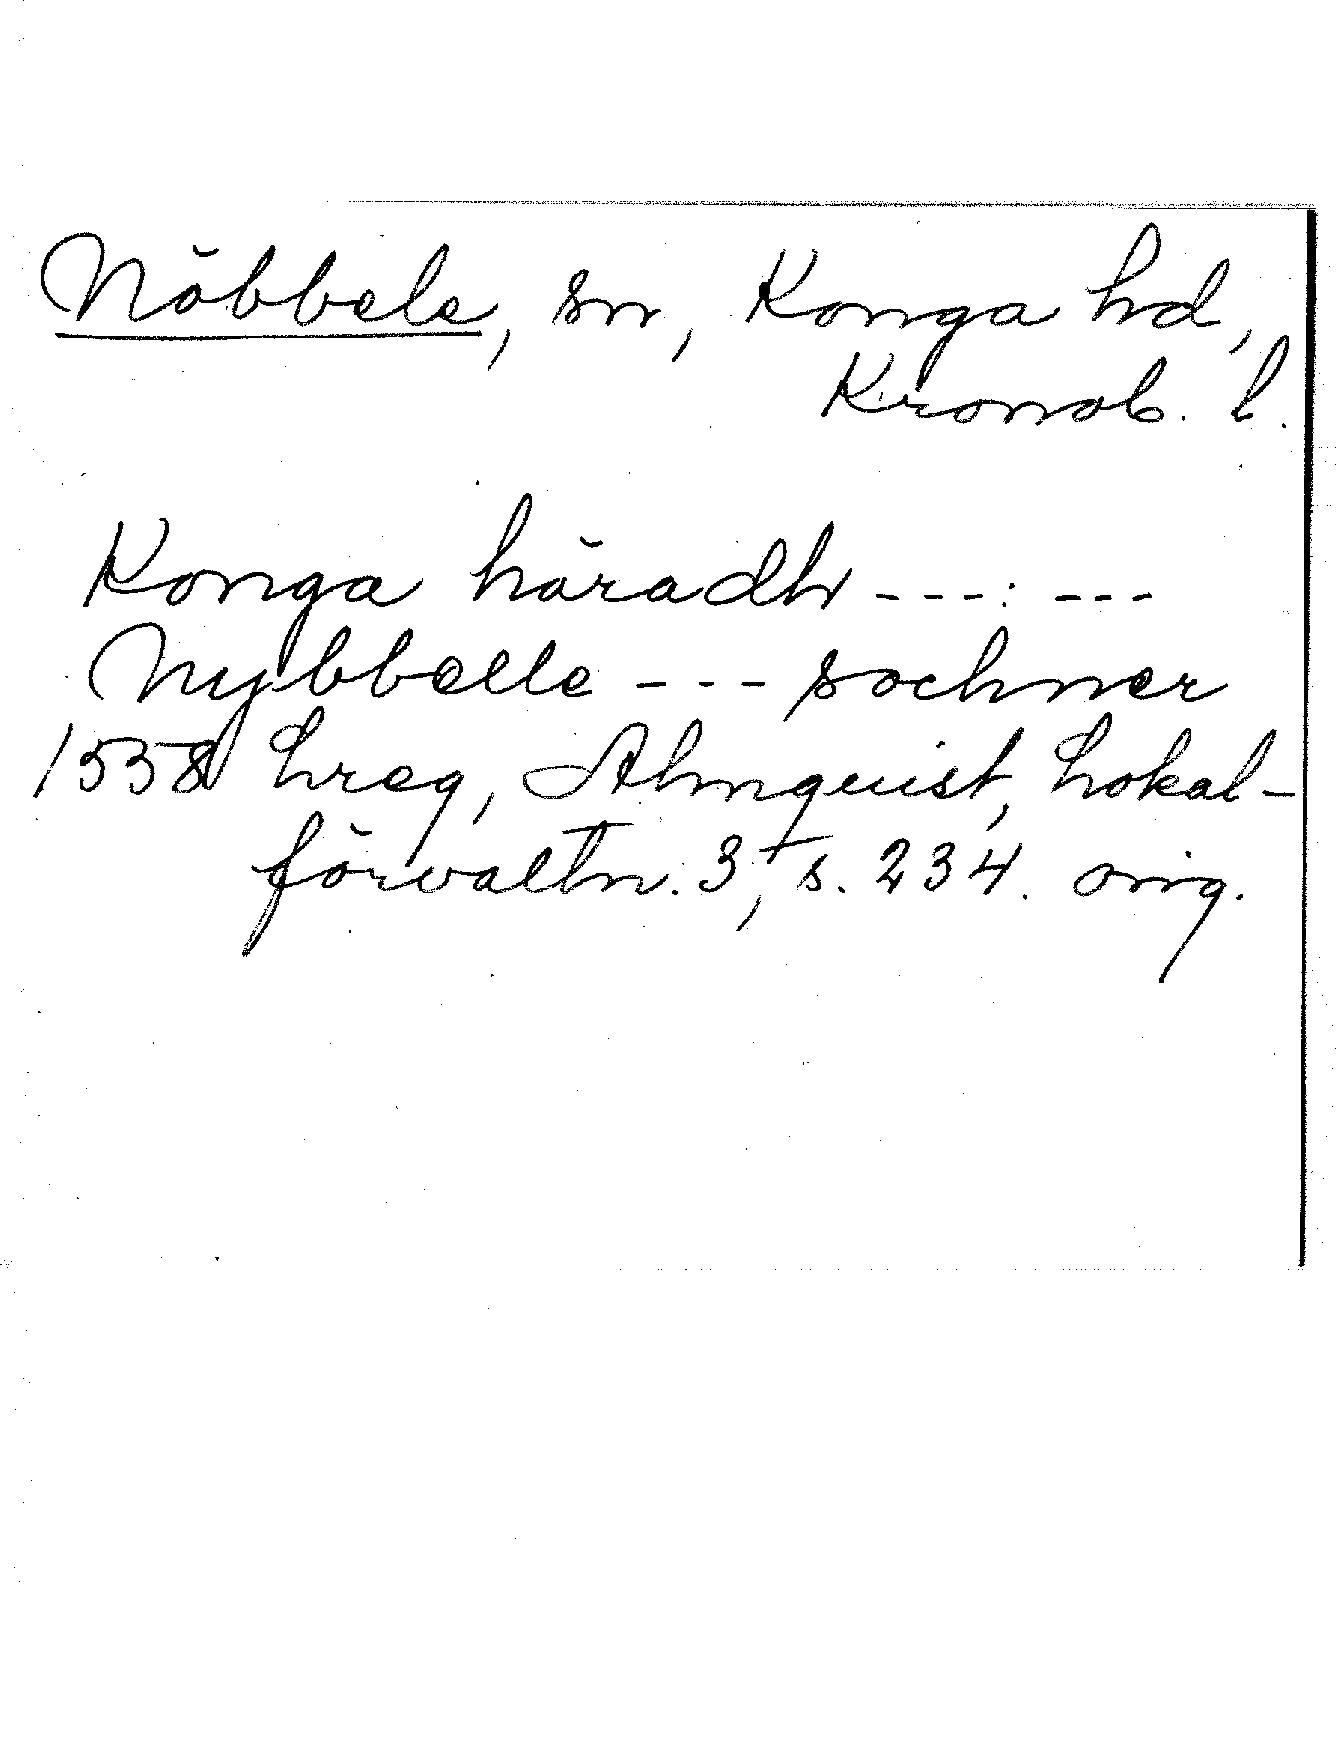 Nöbbele, sn, Konga hd,
Kronob. l.
Konga häradh ---:---
Nybbelle --- sochner
1538 Lreg, Almquist, Lokal-
förvaltn. 3, s. 234. orig.